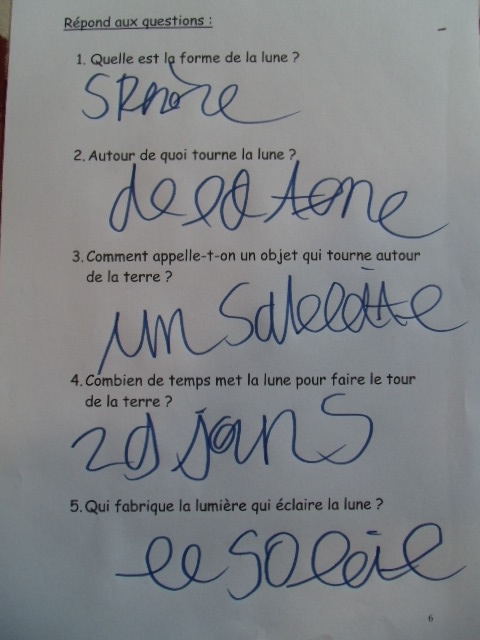 Répond aux questions :
1. Quelle est la forme de la lune ?
SRhère
2. Autour de quoi tourne la lune ?
de la terre
3. Comment appelle-t-on un objet qui tourne autour
de la terre ?
un Satelette
4. Combien de temps met la lune pour faire le tour
de la terre ?
29 jours
5. Qui fabrique la lumière qui éclaire la lune ?
le Soleil
6